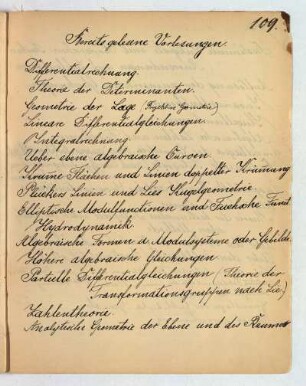 109.
Bereits gelesene Vorlesungen.
Differentialrechnung.
Theorie der Determinanten.
Geometrie der Lage (Projektive Geometrie)
Lineare Differentialgleichungen.
Integralrechnung
Ueber ebene algebraische Curven
Krumme Flächen und Linien doppelter Krümmung
Plückers Linien und Lies Kugelgeometrie.
Elliptische Modulfunctionen und Fuchsche Funct
Hydrodynamik.
Algebraische Formen d. Modulsysteme oder Gebilde.
Höhere algebraische Gleichungen
Partielle Differentialgleichungen (Theorie der
Transformationsgruppen nach Lie.)
Zahlentheorie.
Analytische Geometrie der Ebene und des Raumes